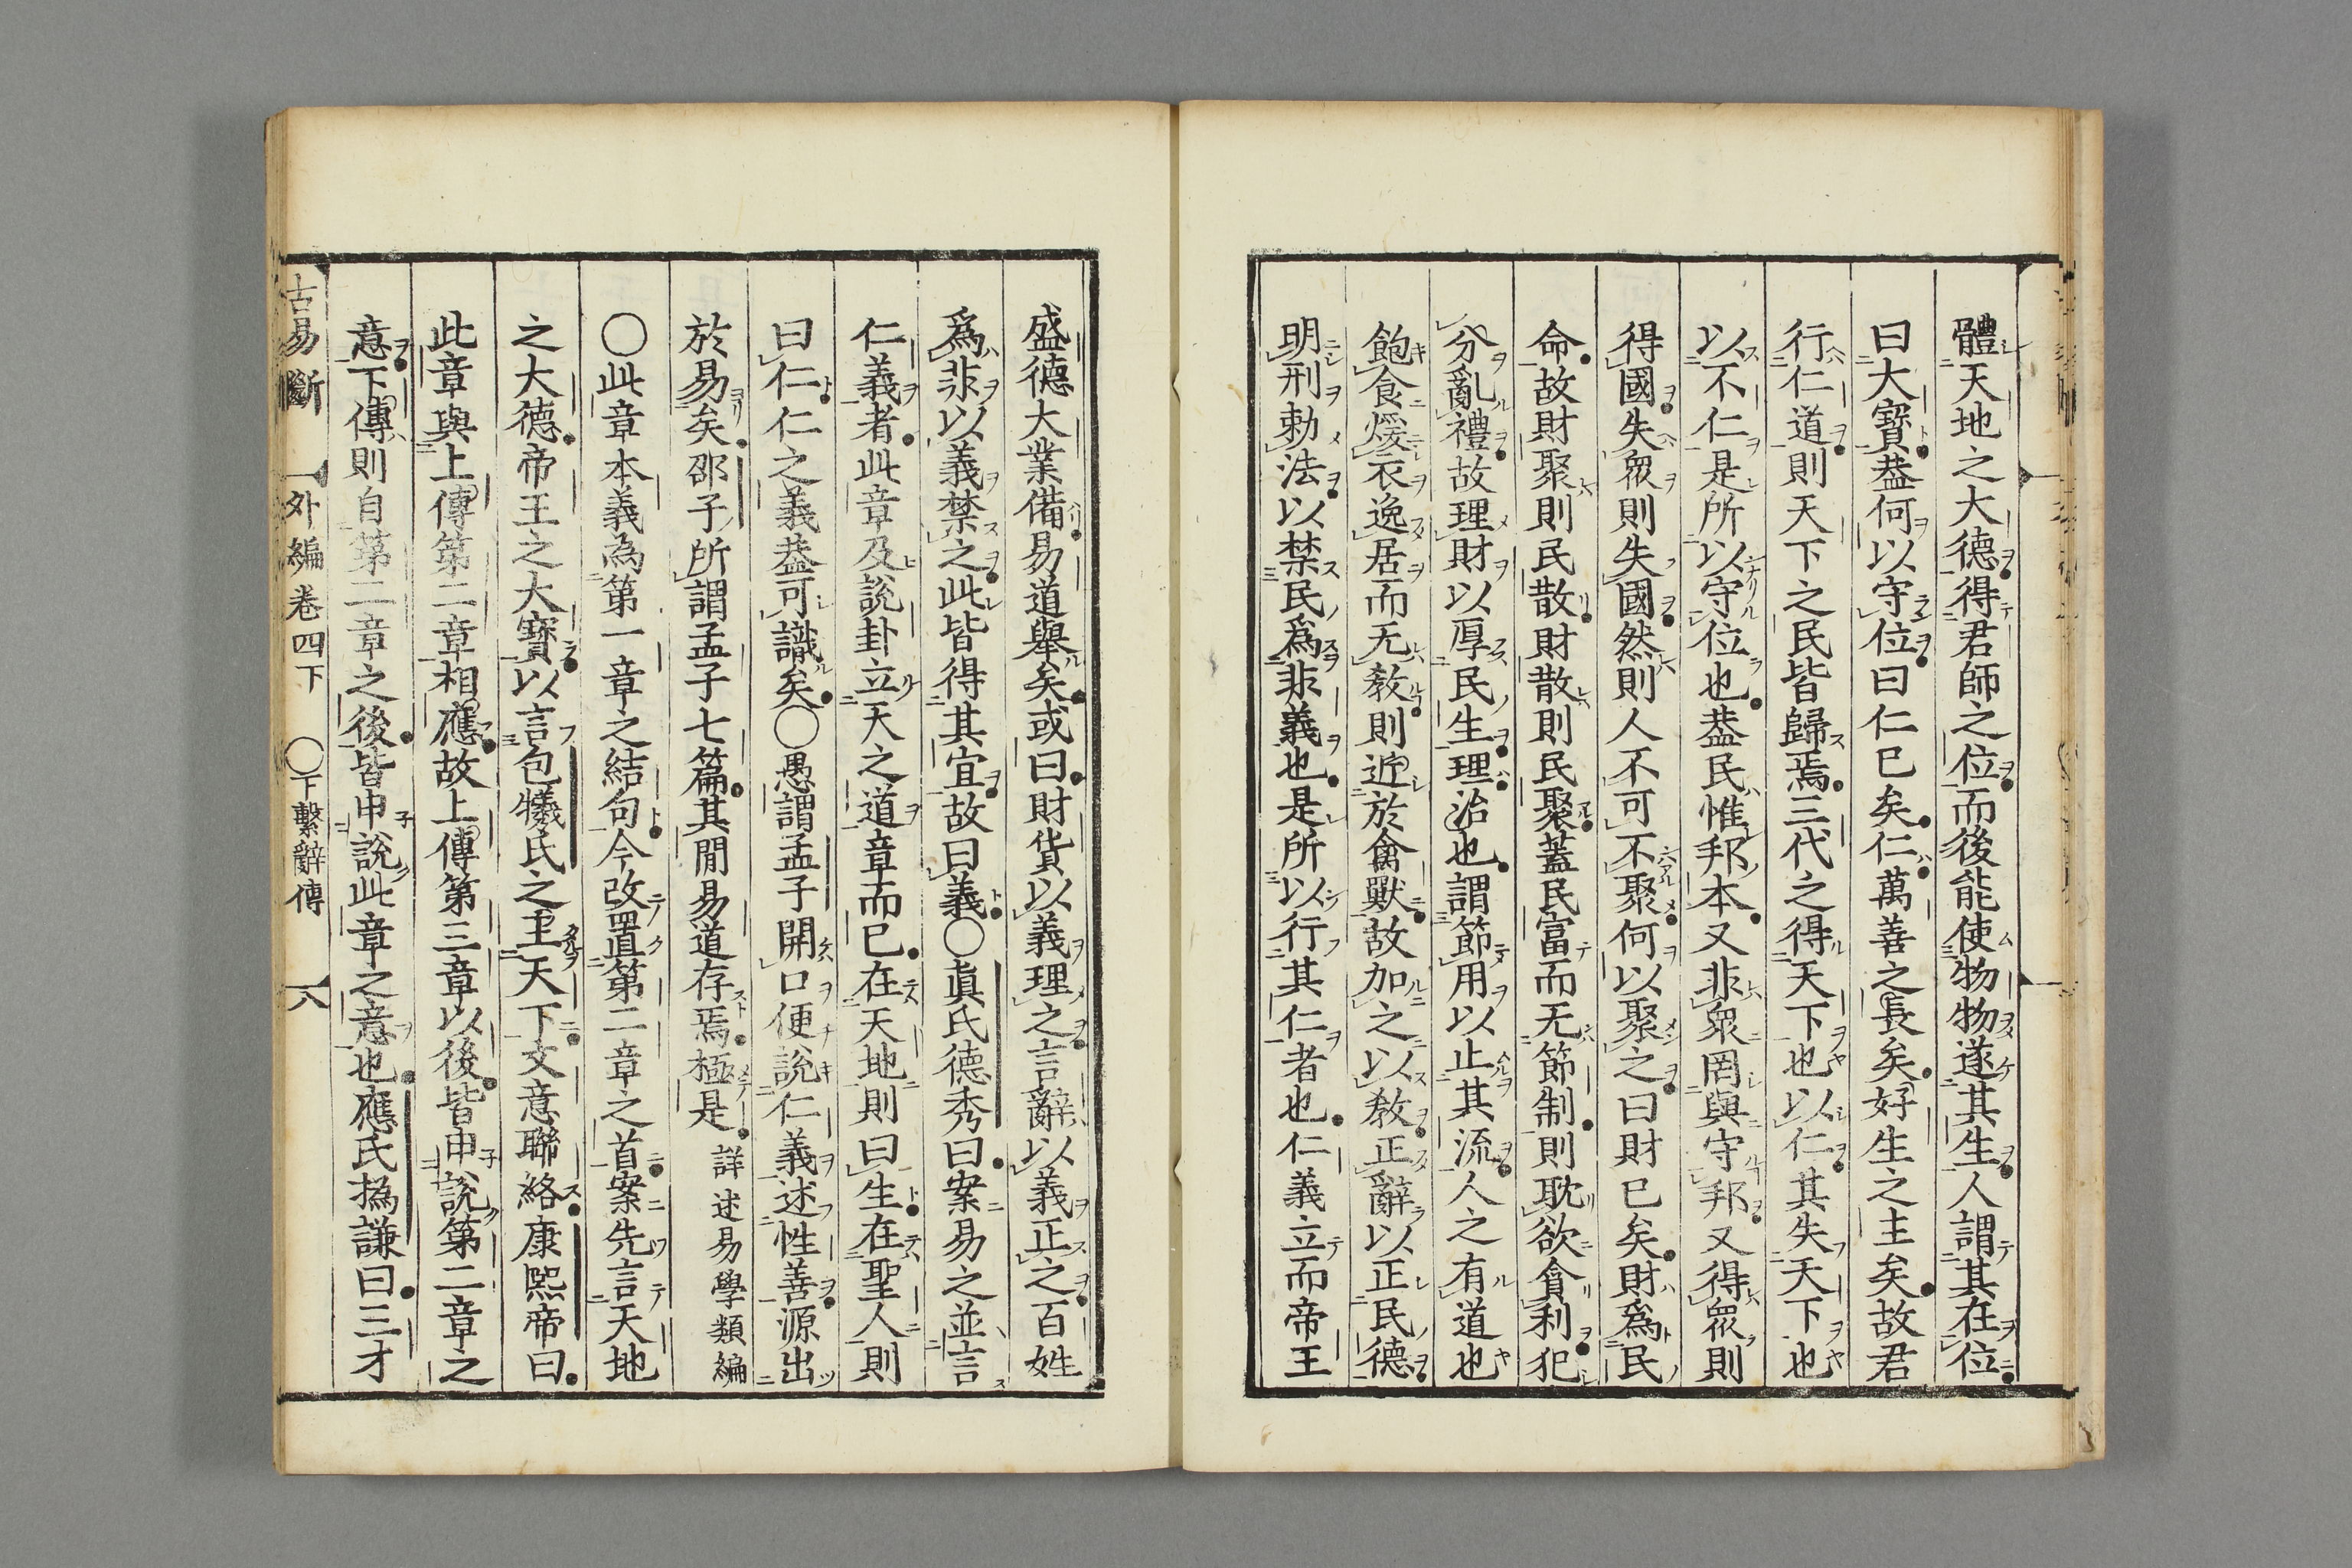 體天地之大德得君師之位而後能使物物遂其生人謂其在位
曰大寶葢何以守位曰仁已矣仁萬善之長矣好生之主矣故君
行仁道則天下之民皆歸焉三代之得天下也以仁其失天下也
以不仁是所以守位也葢民惟邦本又非衆罔與守邦又得衆則
得國失衆則失國然則人不可不聚何以聚之曰財已矣財爲民
命故財聚則民散財散則民聚蓋民富而无節制則耽欲貪利犯
分亂禮故理財以厚民生理治也謂節用以止其流人之有道也
飽食煖衣逸居而无敎則近於禽獸故加之以敎正辭以正民德
明刑勅法以禁民爲非義也是所以行其仁者也仁義立而帝王
盛德大業備易道舉矣或曰財貨以義理之言辭以義正之百姓
爲非以義禁之此皆得其宜故曰義〇眞氏德秀曰案易之並言
仁義者此章及說卦立天之道章而已在天地則曰生在聖人則
曰仁仁之義葢可識矣〇愚謂孟子開口便說仁義述性善源出
於易矣邵子所謂孟子七篇其閒易道存焉極是詳述易學類編
〇此章本義為第一章之結句今改置第二章之首案先言天地
之大德帝王之大寶以言包犧氏之王天下文意聯絡康熙帝曰
此章與上傳第二章相應故上傳第三章以後皆申說第二章之
意下傳則自第二章之後皆申說此章之意也應氏撝謙曰三才
古易斷 外編卷四下 〇下繫辭傳 八